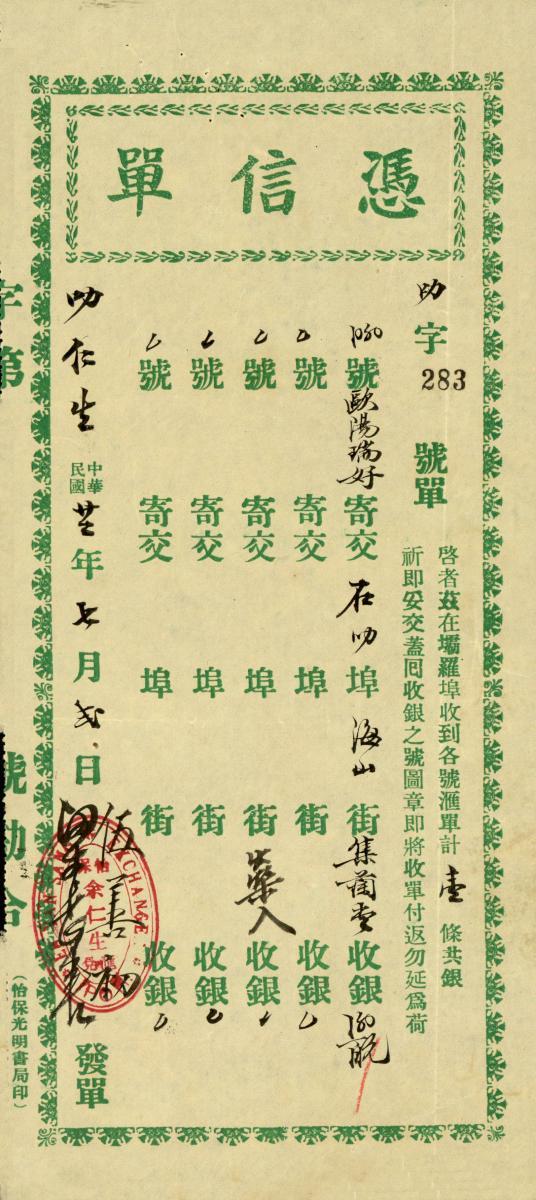 憑信單
叻字
283
號單
啓者茲在壩羅埠收到各號滙單計壹條共銀
祈即妥交蓋囘收銀之號圖章即將收單付返勿延爲荷
號歐陽瑞好寄交在叻埠海山街集蘭堂收銀
號寄交埠街收銀
號寄交埠街收銀
號寄交埠街收銀
號寄交埠街收銀
叻仁生
中華民國廿二年七月弍日
發單
怡保
余仁生
滙兌
EXCHANGE
字第
號勘合
(怡保光明書局印)